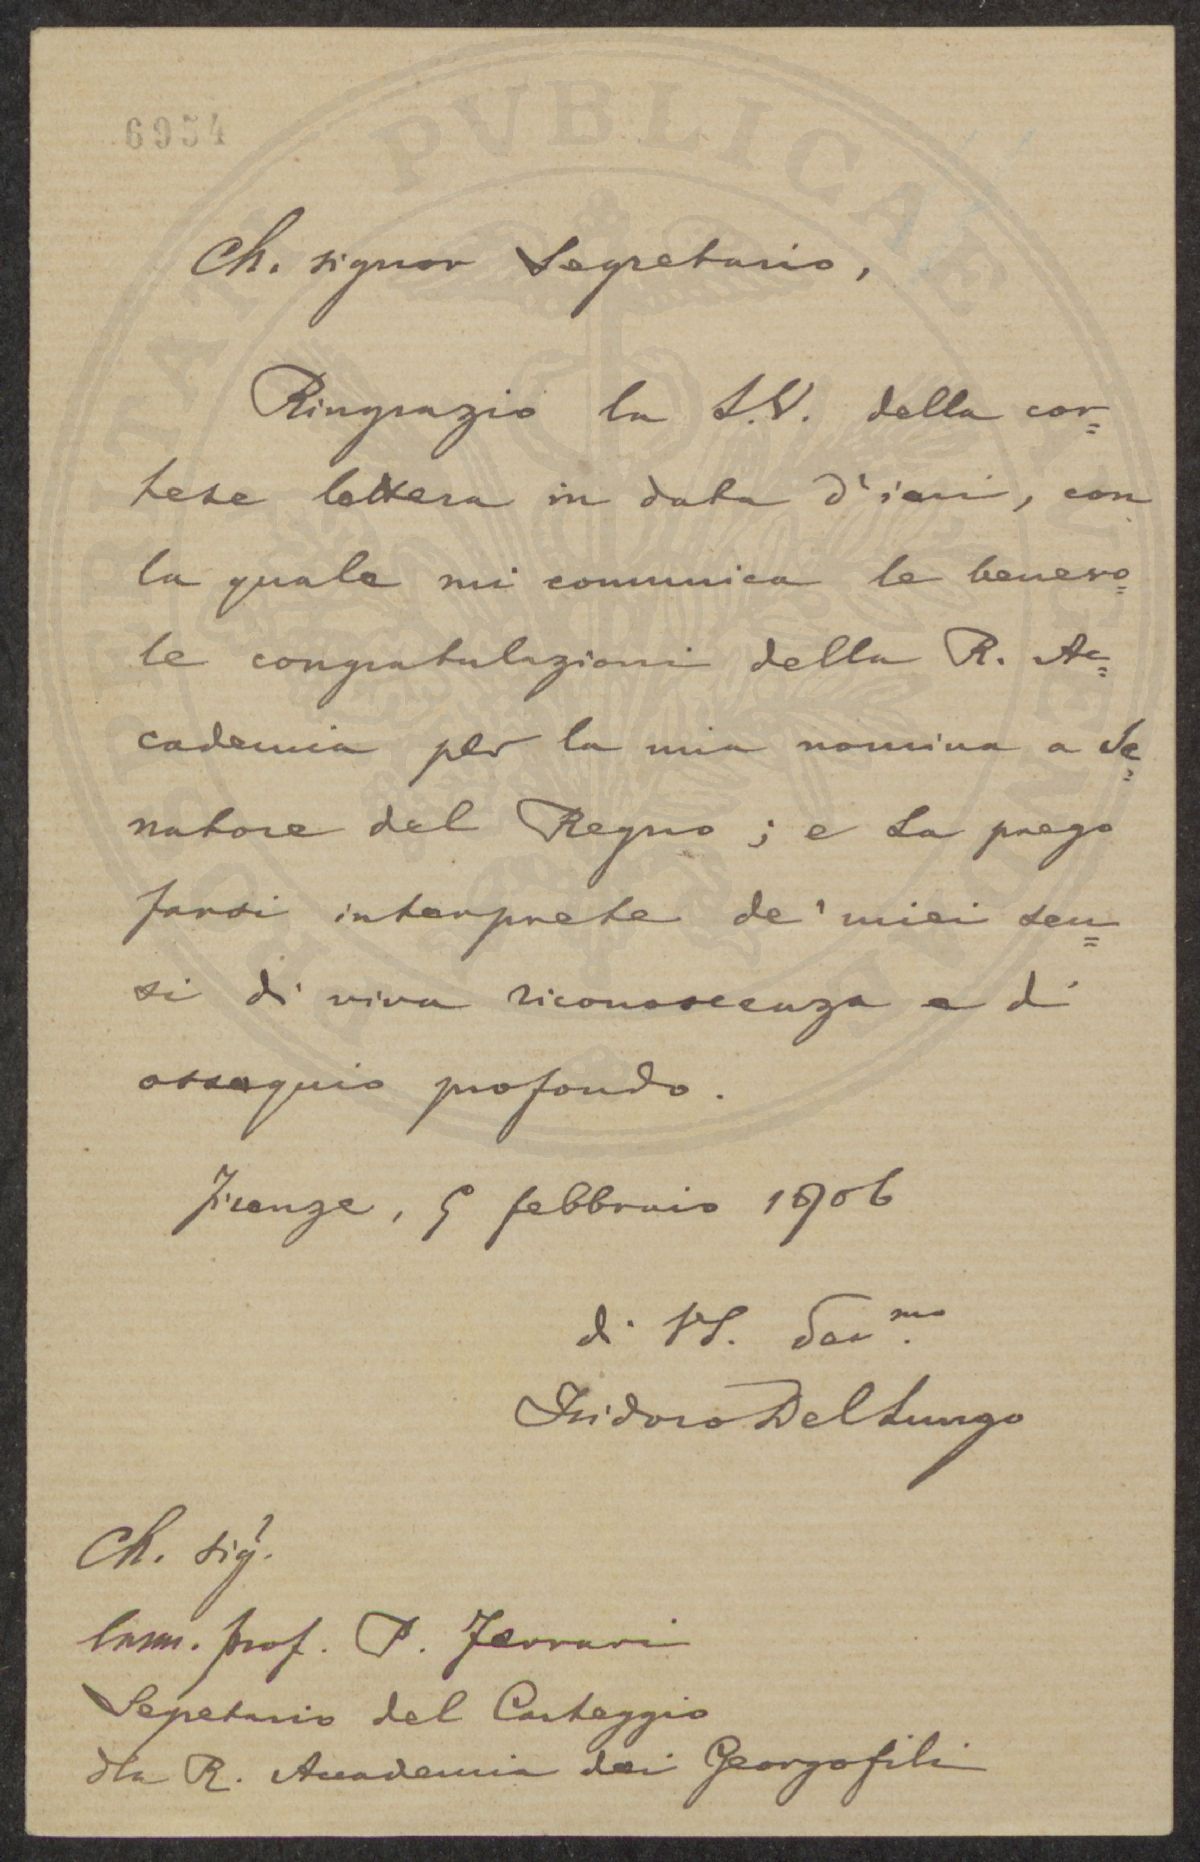 6954
Ch. signor Segretario,
Ringrazio la S.V. della cor=
tese lettera in data d'ieri, con
la quale mi comunica le benevo=
le congratulazioni della R. Ac=
cademia per la mia nomina a Se=
natore del Regno; e La prego
farsi interprete de' miei sen=
si di viva riconoscenza e di
ossequio profondo.
Firenze, 9 febbraio 1906
di V.S. Dev.mo
Isidoro Del Lungo
Ch. sigr.
Comm. prof. P. Ferrari
Segretario del Carteggio
dla R. Accademia dei Georgofili
PVBLICAE